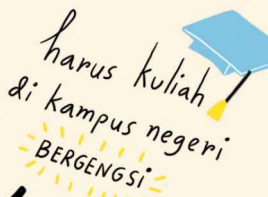 harus kuliah
di kampus negeri
BERGENGSi